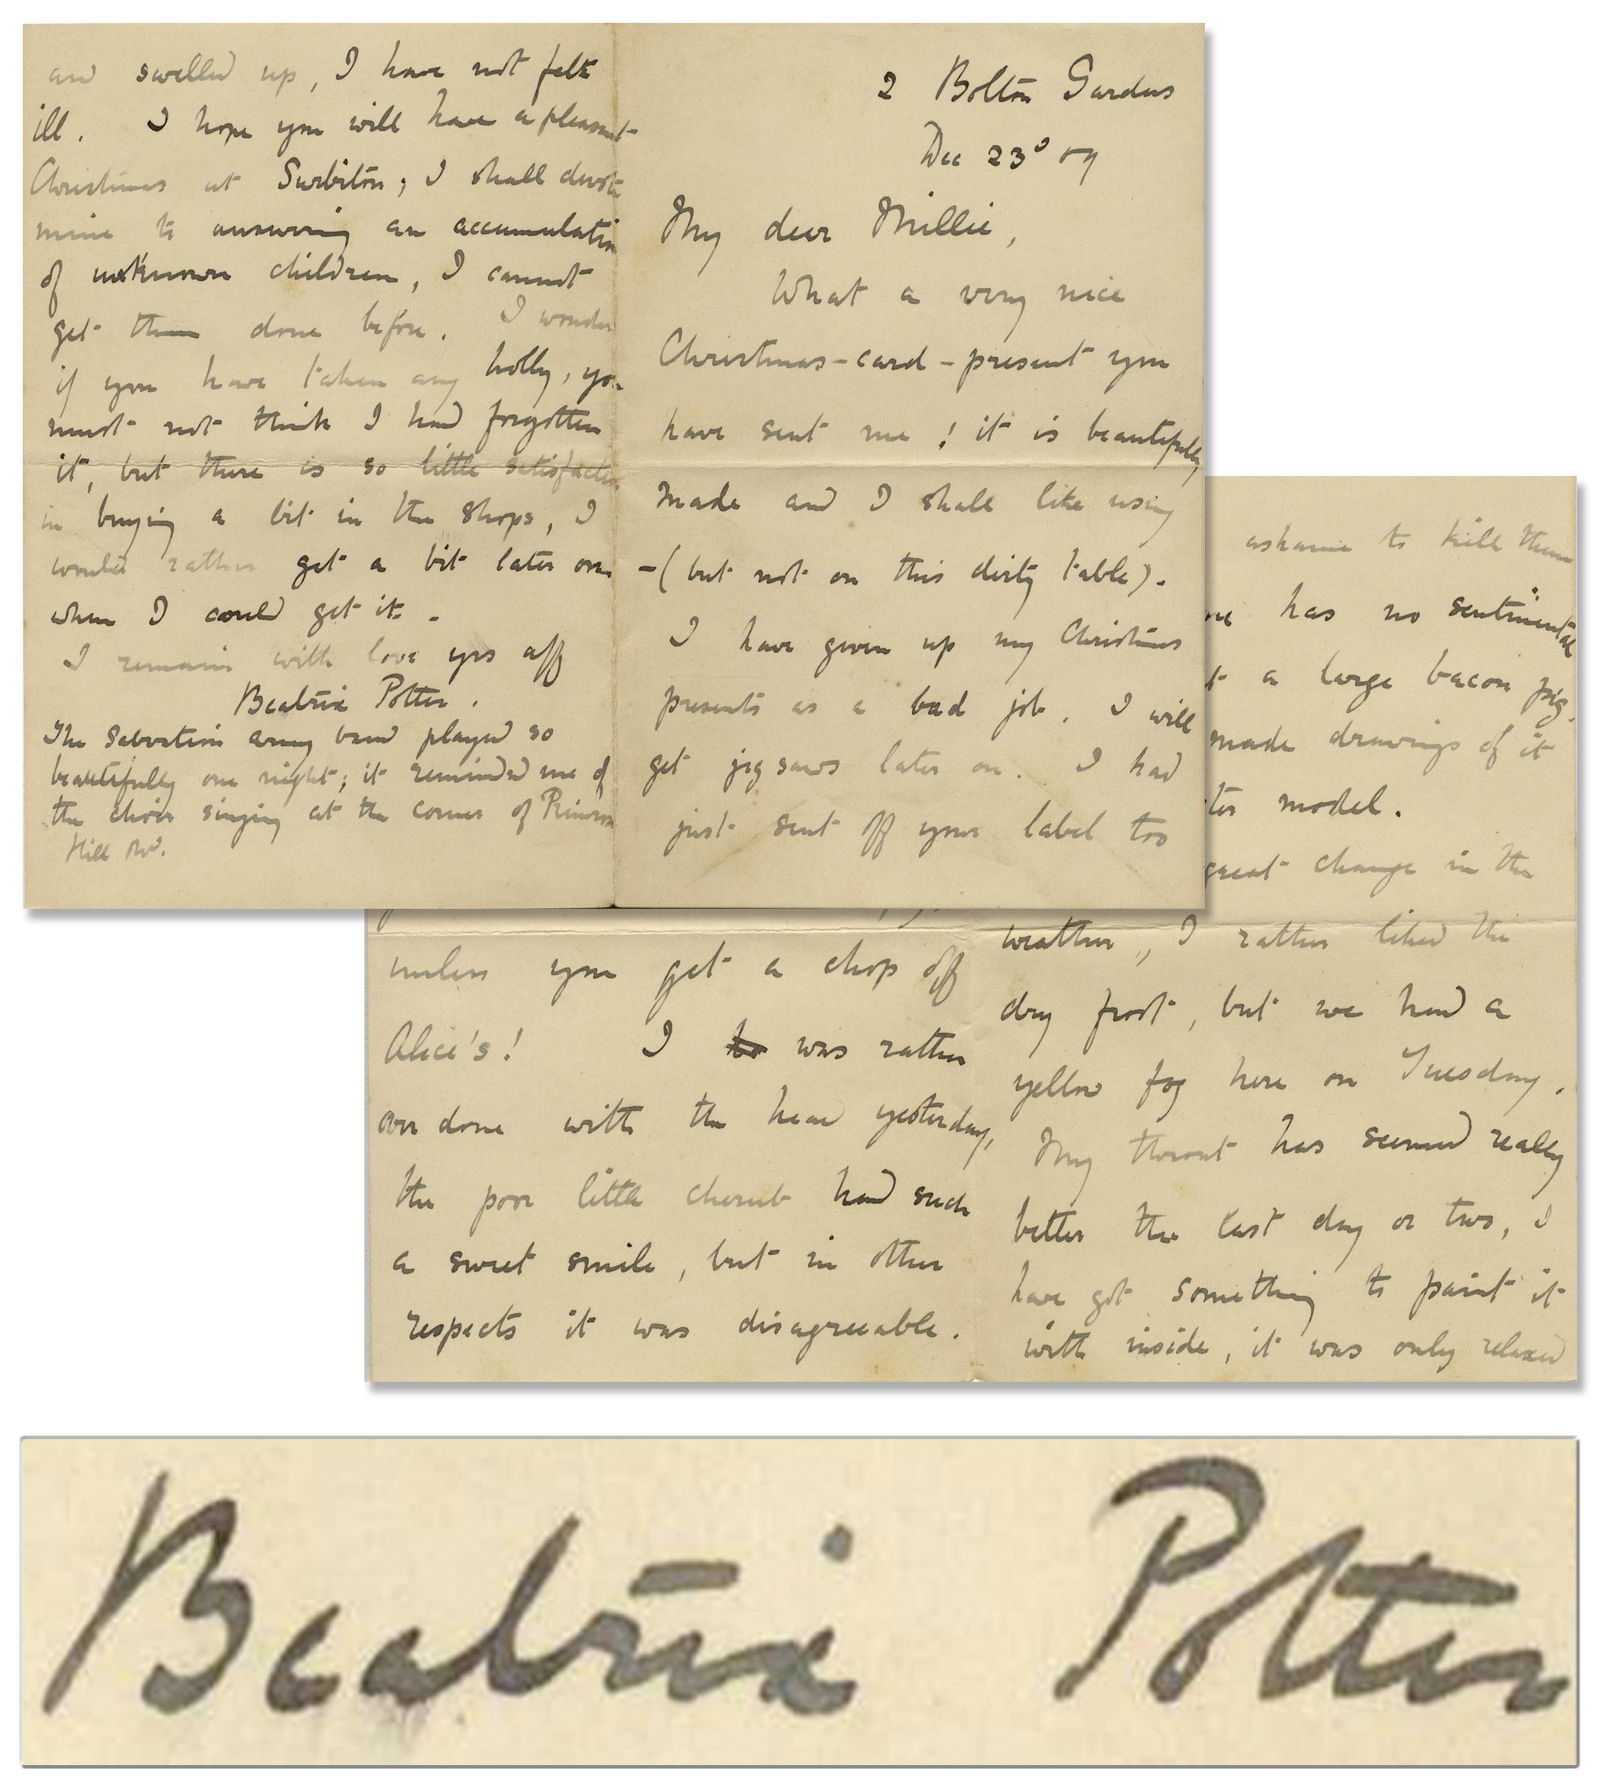 2 Bolton Gardens
Dec 23d 09
My dear Millie,
What a very nice
Christmas-card-present you
have sent me! it is beautifully
made and I shall like using
-(but not on this dirty table).
I have given up my Christmas
presents as a bad job. I will
get jig saws later on. I had
just sent off your label too
unless you get a chop off
Alice's! I was rather
over done with the head yesterday,
the poor little cherub had such
a sweet smile, but in other
respects it was disagreeable.
ashamed to kill them
has no sentimental
a large bacon pig.
made drawings of it
model.
great change in the
weather, I rather liked the
dry frost, but we had a
yellow fog here on Tuesday.
My throat has seemed really
better the last day or two, I
have got something to paint it
with inside, it was only relaxed
and swelled up, I have not felt
ill. I hope you will have a pleasant
Christmas at Surbiton; I shall devote
mine to answering an accumulation
of unknown children, I cannot
get them done before. I wonder
if you have taken any holly, you
must not think I had forgotten
it, but there is so little satisfaction
in buying a bit in the shops, I
would rather get a bit later on
when I could get it. -
I remain with love yrs aff
Beatrix Potter.
The Salvation army band played so
beautifully one night; it reminded me of
the choir singing at the corner of Primrose
Hill Rd.
Beatrix Potter